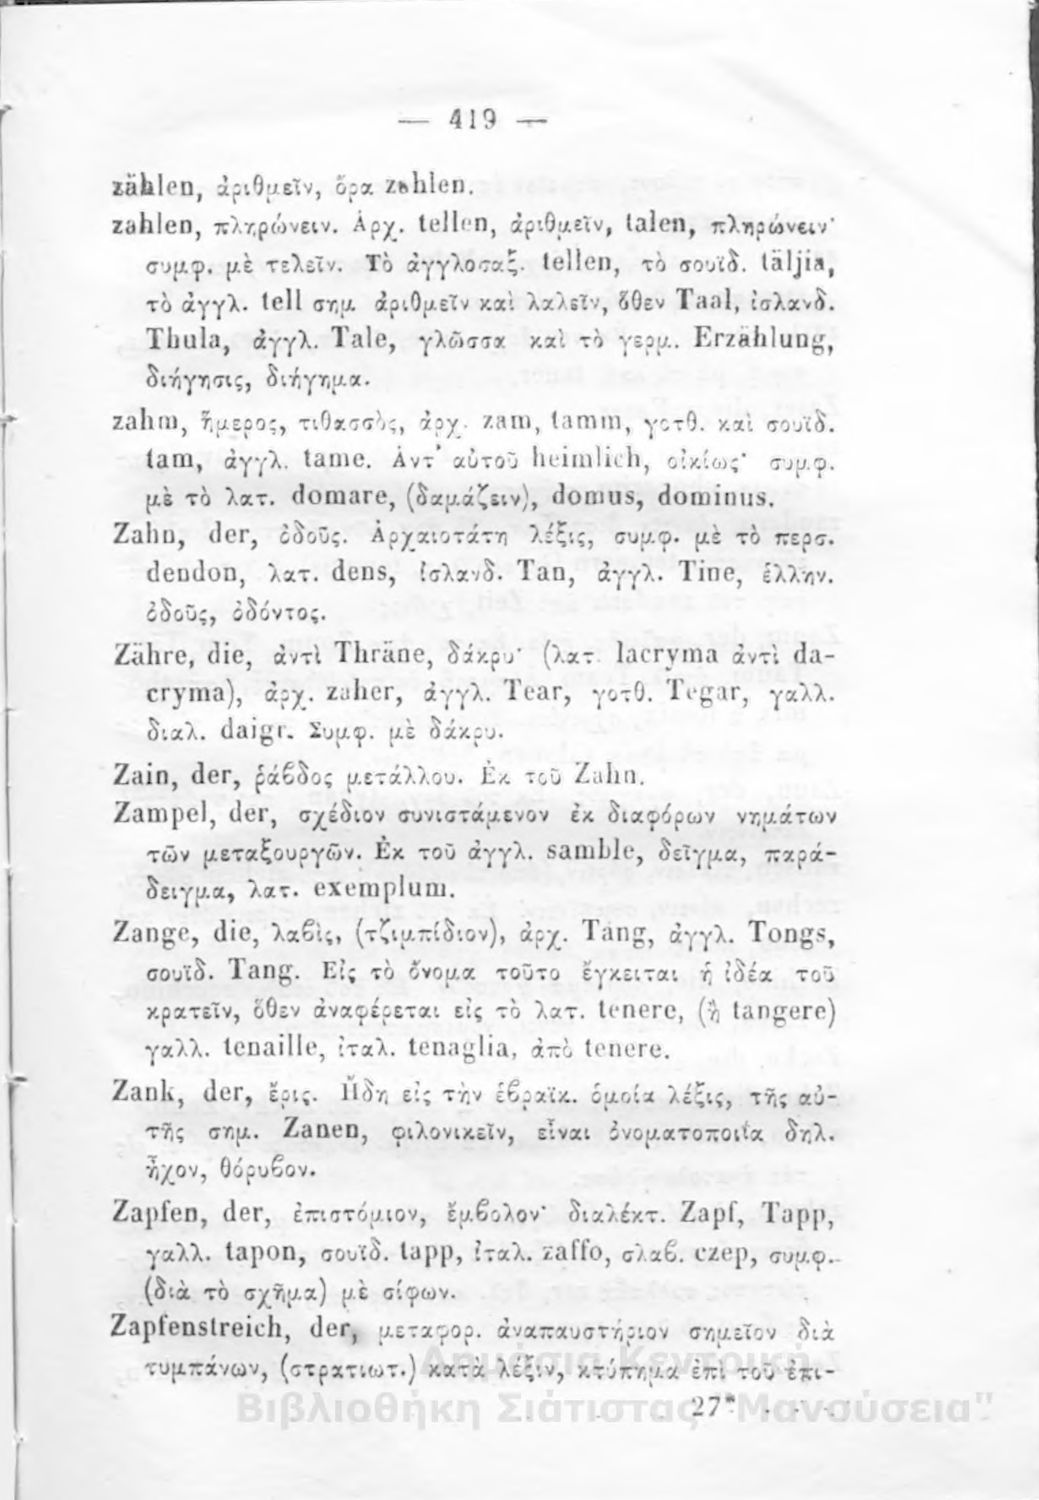 — 419 —
zählen, ἀριθμεῖν, ὅρα zahlen.
zahlen, πληρώνειν. Ἀρχ. tellen, ἀριθμεῖν, talen, πληρώνειν·
συμφ. μὲ τελεῖν. Τὸ ἀγγλοσαξ. tellen, τὸ σουϊδ. täljia,
τὸ ἀγγλ. tell σημ. ἀριθμεῖν καὶ λαλεῖν, ὅθεν Taal, ἰσλανδ.
Thula, ἀγγλ. Tale, γλῶσσα καὶ τὸ γερμ. Erzählung,
διήγησις, διήγημα.
zahm, ἥμερος, τιθασσὸς, ἀρχ. zam, tamm, γοτθ. καὶ σουϊδ.
tam, ἀγγλ. tame. Ἀντ' αὐτοῦ heimlich, οἰκίως· συμφ.
μὲ τὸ λατ. domare, (δαμάζειν), domus, dominus.
Zahn, der, ὀδοῦς. Ἀρχαιοτάτη λέξις, συμφ. μὲ τὸ περσ.
dendon, λατ. dens, ἰσλανδ. Tan, ἀγγλ. Tine, ἑλλην.
ὀδοῦς, ὀδόντος.
Zähre, die, ἀντὶ Thräne, δάκρυ· (λατ. lacryma ἀντὶ da-
cryma), ἀρχ. zaher, ἀγγλ. Tear, γοτθ. Tegar, γαλλ.
διαλ. daigr. Συμφ. μὲ δάκρυ.
Zain, der, ῥάβδος μετάλλου. Ἐκ τοῦ Zahn.
Zampel, der, σχέδιον συνιστάμενον ἐκ διαφόρων νημάτων
τῶν μεταξουργῶν. Ἐκ τοῦ ἀγγλ. samble, δεῖγμα, παρά-
δειγμα, λατ. exemplum.
Zange, die, λαβὶς, (τζιμπίδιον), ἀρχ. Tang, ἀγγλ. Tongs,
σουϊδ. Tang. Εἰς τὸ ὄνομα τοῦτο ἔγκειται ἡ ἰδέα τοῦ
κρατεῖν, ὅθεν ἀναφέρεται εἰς τὸ λατ. tenere, (ἢ tangere)
γαλλ. tenaille, ἰταλ. tenaglia, ἀπὸ tenere.
Zank, der, ἔρις. Ἤδη εἰς τὴν ἑβραϊκ. ὁμοία λέξις, τῆς αὐ-
τῆς σημ. Zanen, φιλονικεῖν, εἶναι ὀνοματοποιΐα δηλ.
ἦχον, θόρυβον.
Zapfen, der, ἐπιστόμιον, ἔμβολον· διαλέκτ. Zapf, Tapp,
γαλλ. tapon, σουϊδ. tapp, ἰταλ. zaffo, σλαβ. czep, συμφ.
(διὰ τὸ σχῆμα) μὲ σίφων.
Zapfenstreich, der, μεταφορ. ἀναπαυστήριον σημεῖον διὰ
τυμπάνων, (στρατιωτ.) κατὰ λέξιν, κτύπημα ἐπὶ τοῦ ἐπι-
27*
Δημόσια Κεντρική
Βιβλιοθήκη Σιάτιστας "Μανούσεια"